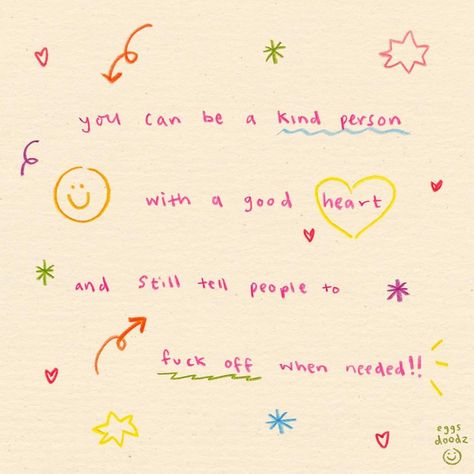 you can be a kind person
with a good heart
and still tell people to
fuck off when needed!!
eggs
doodz